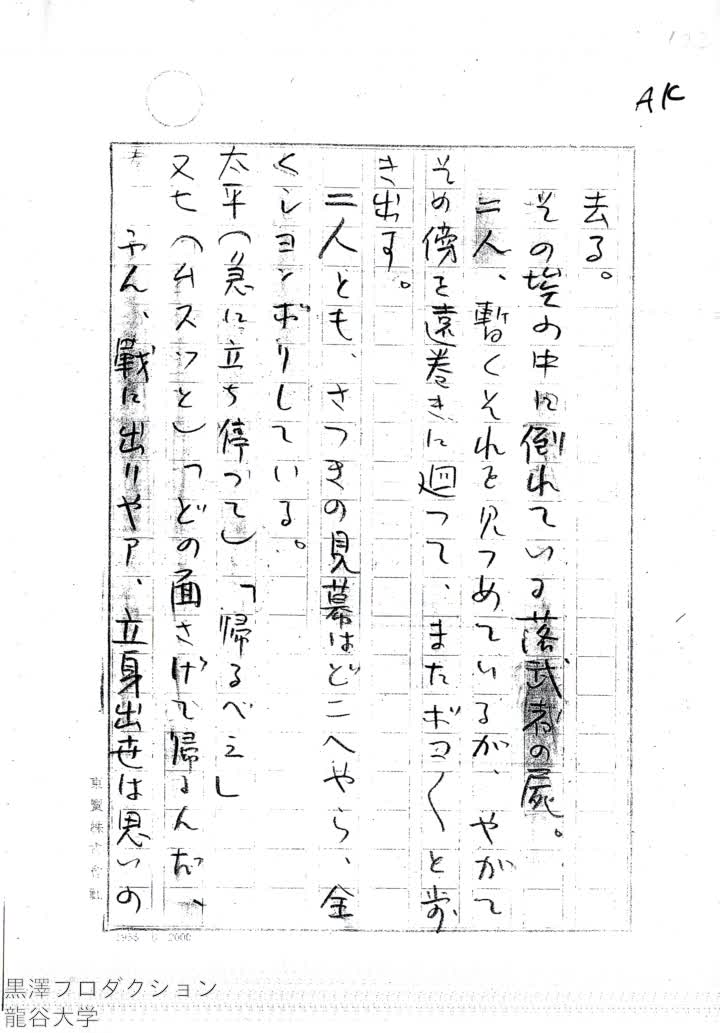 AK
去る。
その埃の中に倒れている落武者の屍。
二人、暫くそれを見つめているが、やがて
その傍を遠巻きに廻って、またボコ〱と歩
き出す。
二人とも、さっきの見幕はどこへやら、全
くションボリしている。
太平（急に立ち停って）「帰るべえ」
又七（ムスッと）「どの面さげて帰るんだ、
ふん、戦に出りやァ、立身出世は思いの
東寳株式会社
黒澤プロダクション
龍谷大学